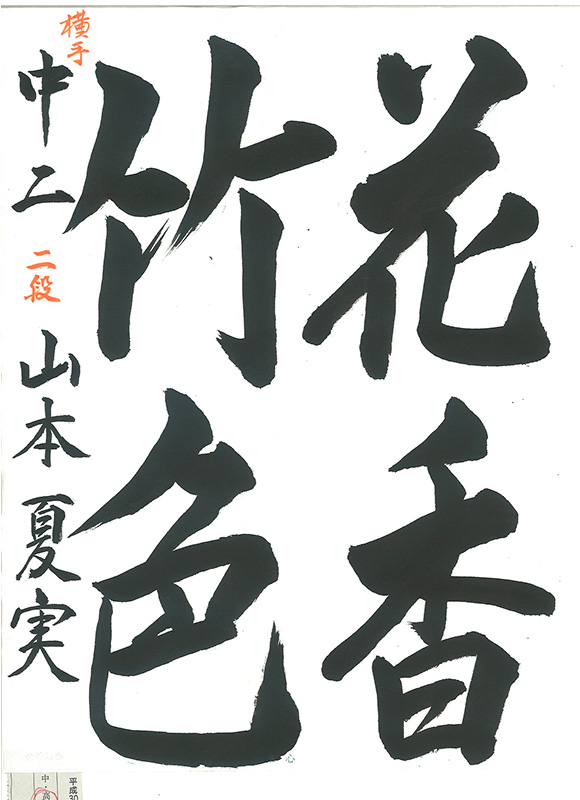 花香
竹色
横手
中二 二段 山本夏実
心
平成30
中・高